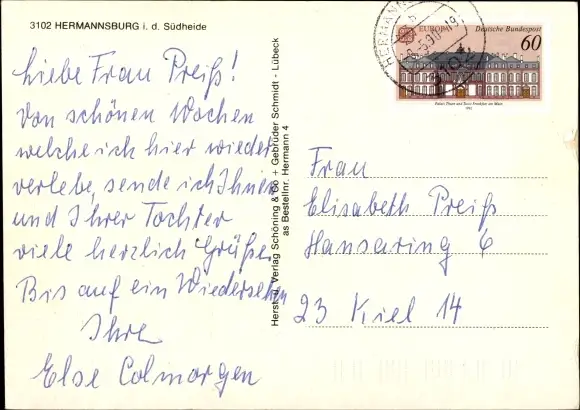 3102 HERMANNSBURG i. d. Südheide
Liebe Frau Preiß!
Von schönen Wochen
welche ich hier wieder
verlebe, sende ich Ihnen
und Ihrer Tochter
viele herzlich Grüße.
Bis auf ein Wiedersehen
Ihre
Else Colmorgen
Herst. u. Verlag Schöning & Co + Gebrüder Schmidt - Lübeck
as Bestellnr. Hermann 4
EUROPA Deutsche Bundespost
60
Palais Thurn und Taxis Frankfurt am Main
1990
Frau
Elisabeth Preiß
Hansaring 6
23 Kiel 14